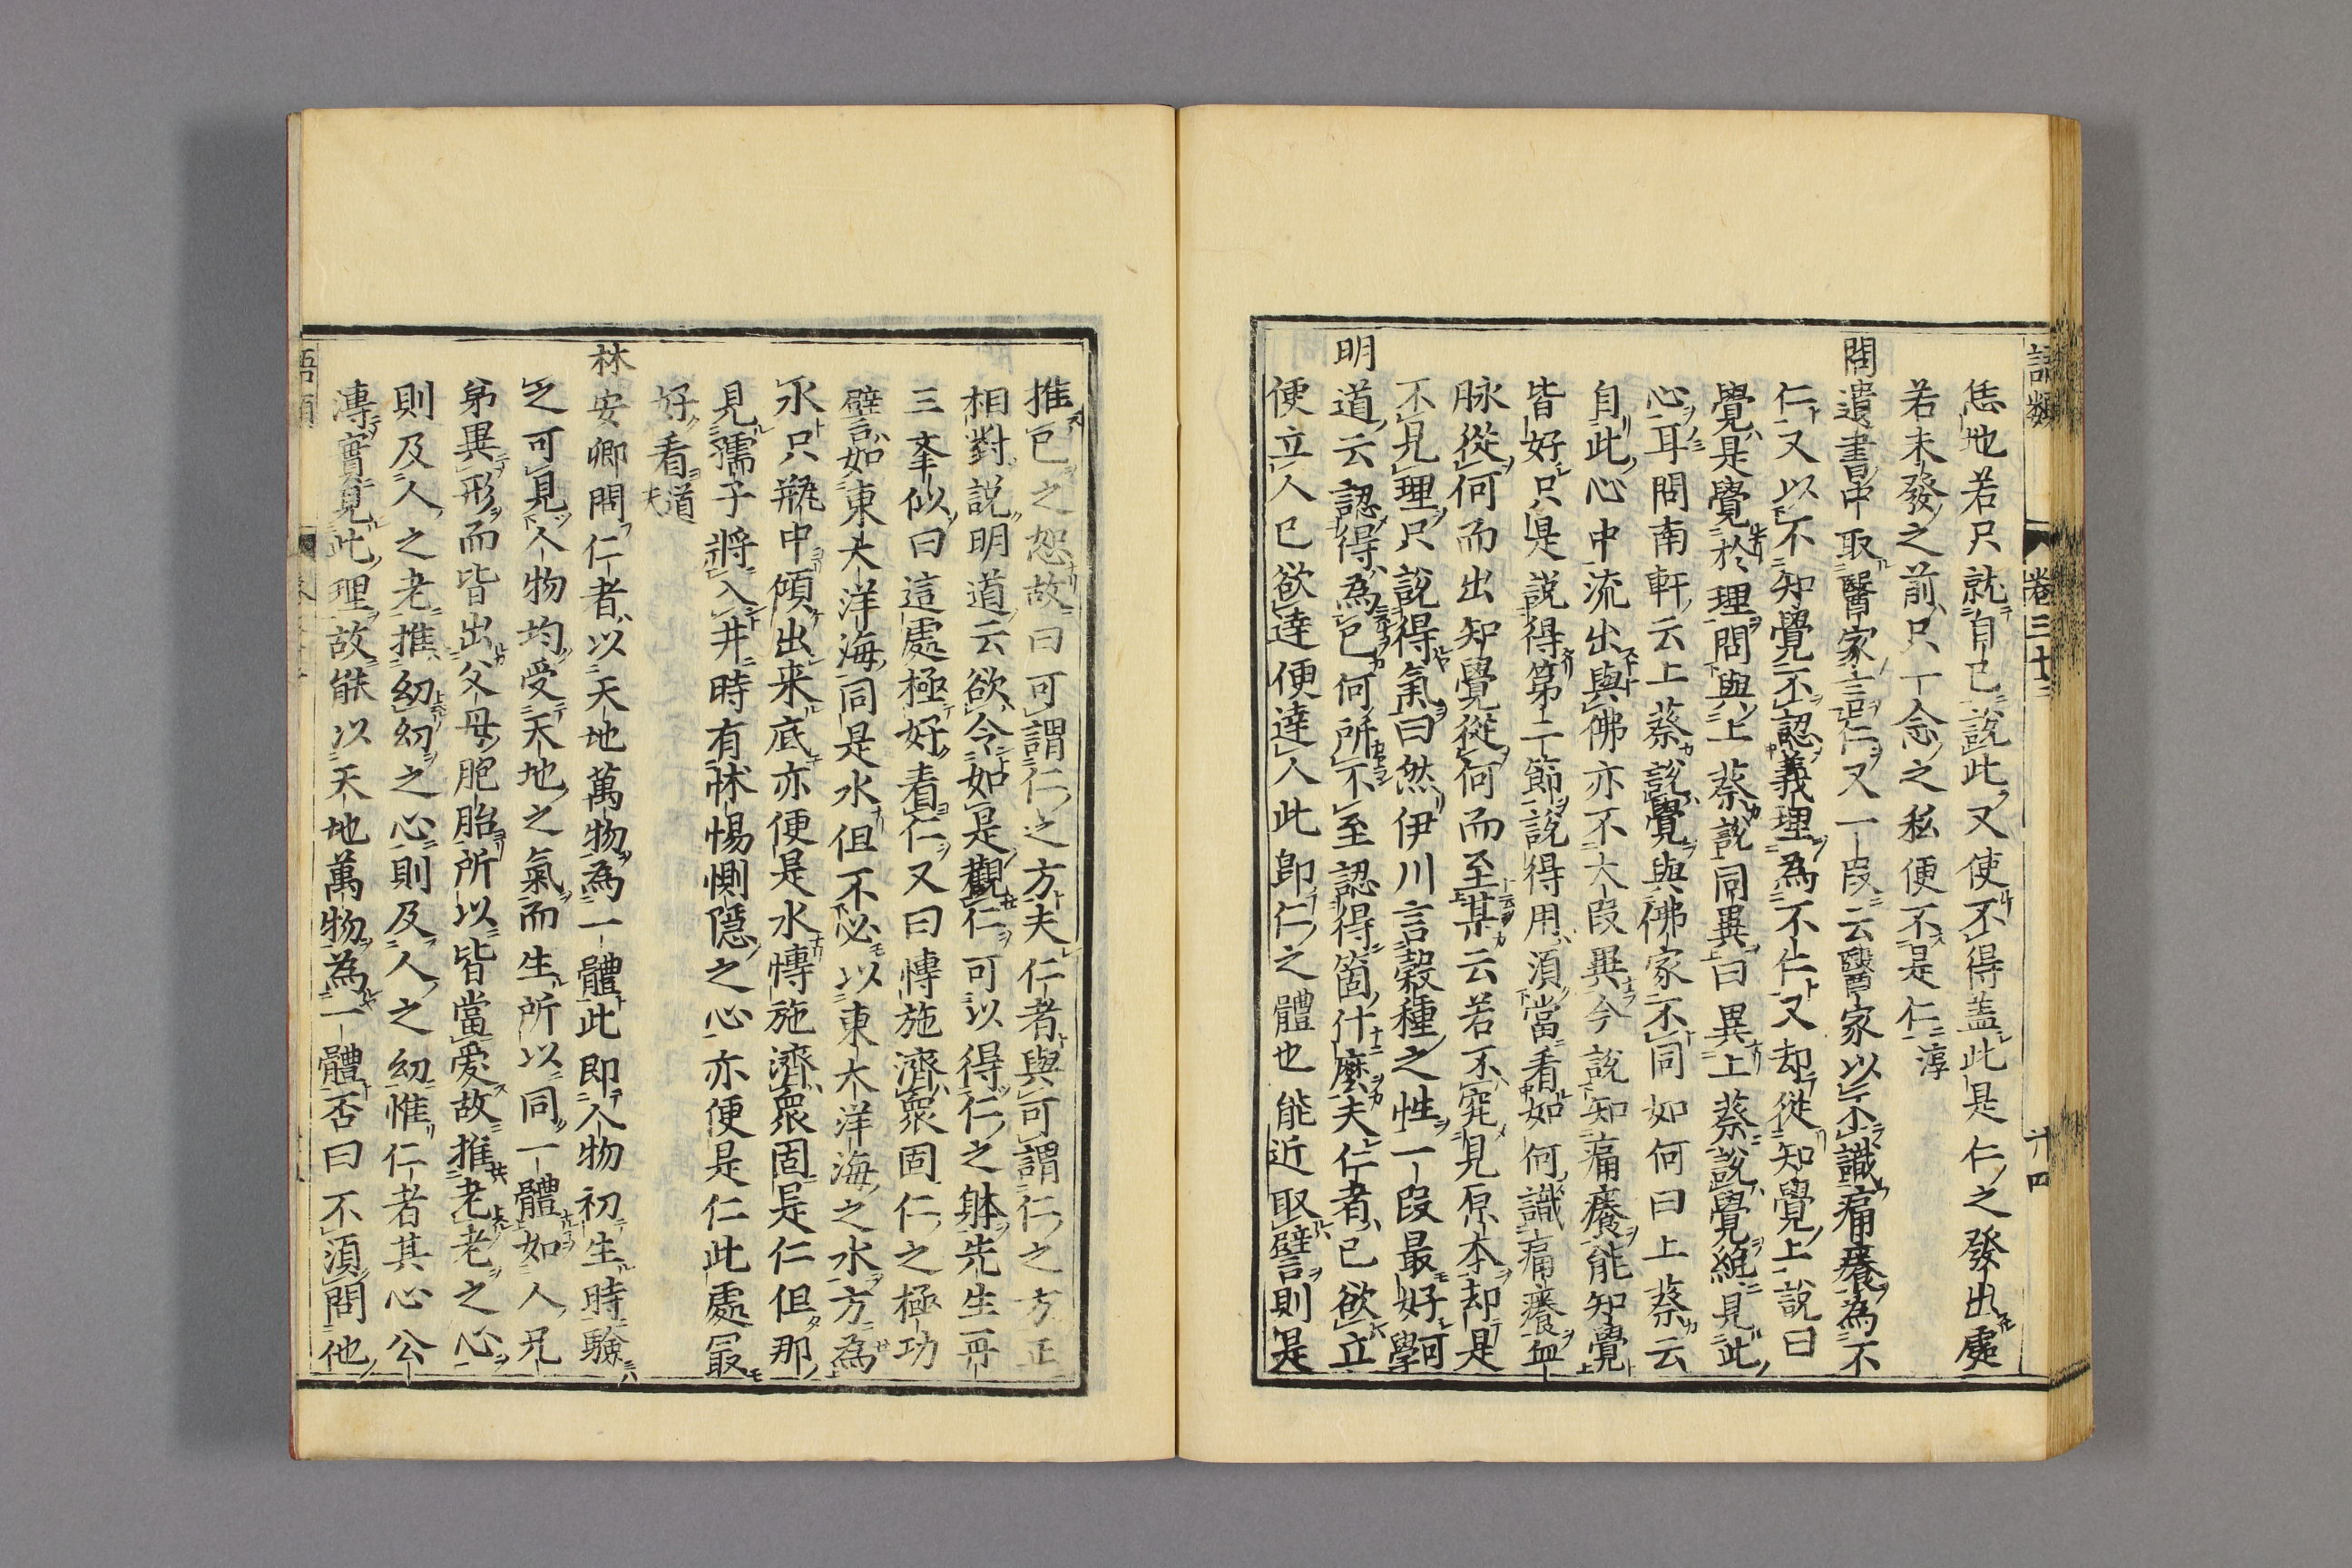 語類 卷三十三 十四
恁地若只就自己說此又使不得蓋此是仁之發出處
若未發之前只一念之私便不是仁淳
問遺書中取醫家言仁又一段云醫家以不識痛癢為不
仁又以不知覺不認義理為不仁又却從知覺上說曰
覺是覺於理問與上蔡說同異曰異上蔡說覺纔見此
心耳問南軒云上蔡說覺與佛家不同如何曰上蔡云
自此心中流出與佛亦不大段異今說知痛癢能知覺
皆好只是說得第二節說得用須當看如何識痛癢血
脉從何而出知覺從何而至某云若不究見原本却是
不見理只說得氣曰然伊川言穀種之性一段最好㝈
明道云認得為己何所不至認得箇什麼夫仁者己欲立
便立人己欲達便達人此即仁之體也能近取譬則是
推己之恕故曰可謂仁之方夫仁者與可謂仁之方正
相對說明道云欲令如是觀仁可以得仁之躰先生再
三舉似曰這處極好看仁又曰博施濟衆固仁之極功
譬如東大洋海同是水但不必以東大洋海之水方為
水只瓶中傾出来底亦便是水博施濟衆固是仁但那
見孺子將入井時有怵惕惻隱之心亦便是仁此處最
好看道夫
林安卿問仁者以天地萬物為一體此即人物初生時驗
之可見人物均受天地之氣而生所以同一體如人兄
弟異形而皆出父母胞胎所以皆當愛故推老老之心
則及人之老推幼幼之心則及人之幼惟仁者其心公
溥實見此理故能以天地萬物為一體否曰不須問他
語類